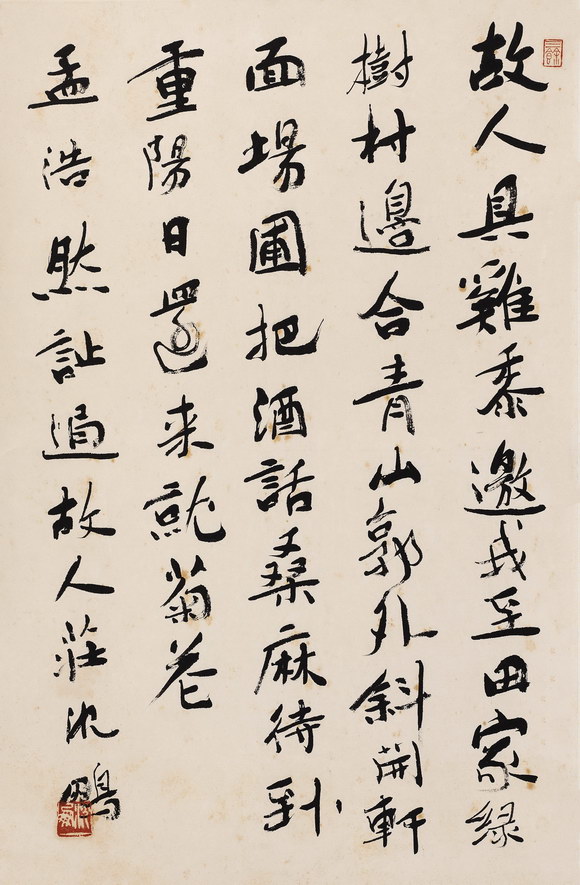 故人具雞黍邀我至田家緑
樹村邊合青山郭外斜開軒
面場圃把酒話桑麻待到
重陽日還来就菊花
孟浩然詩過故人莊沈鵬